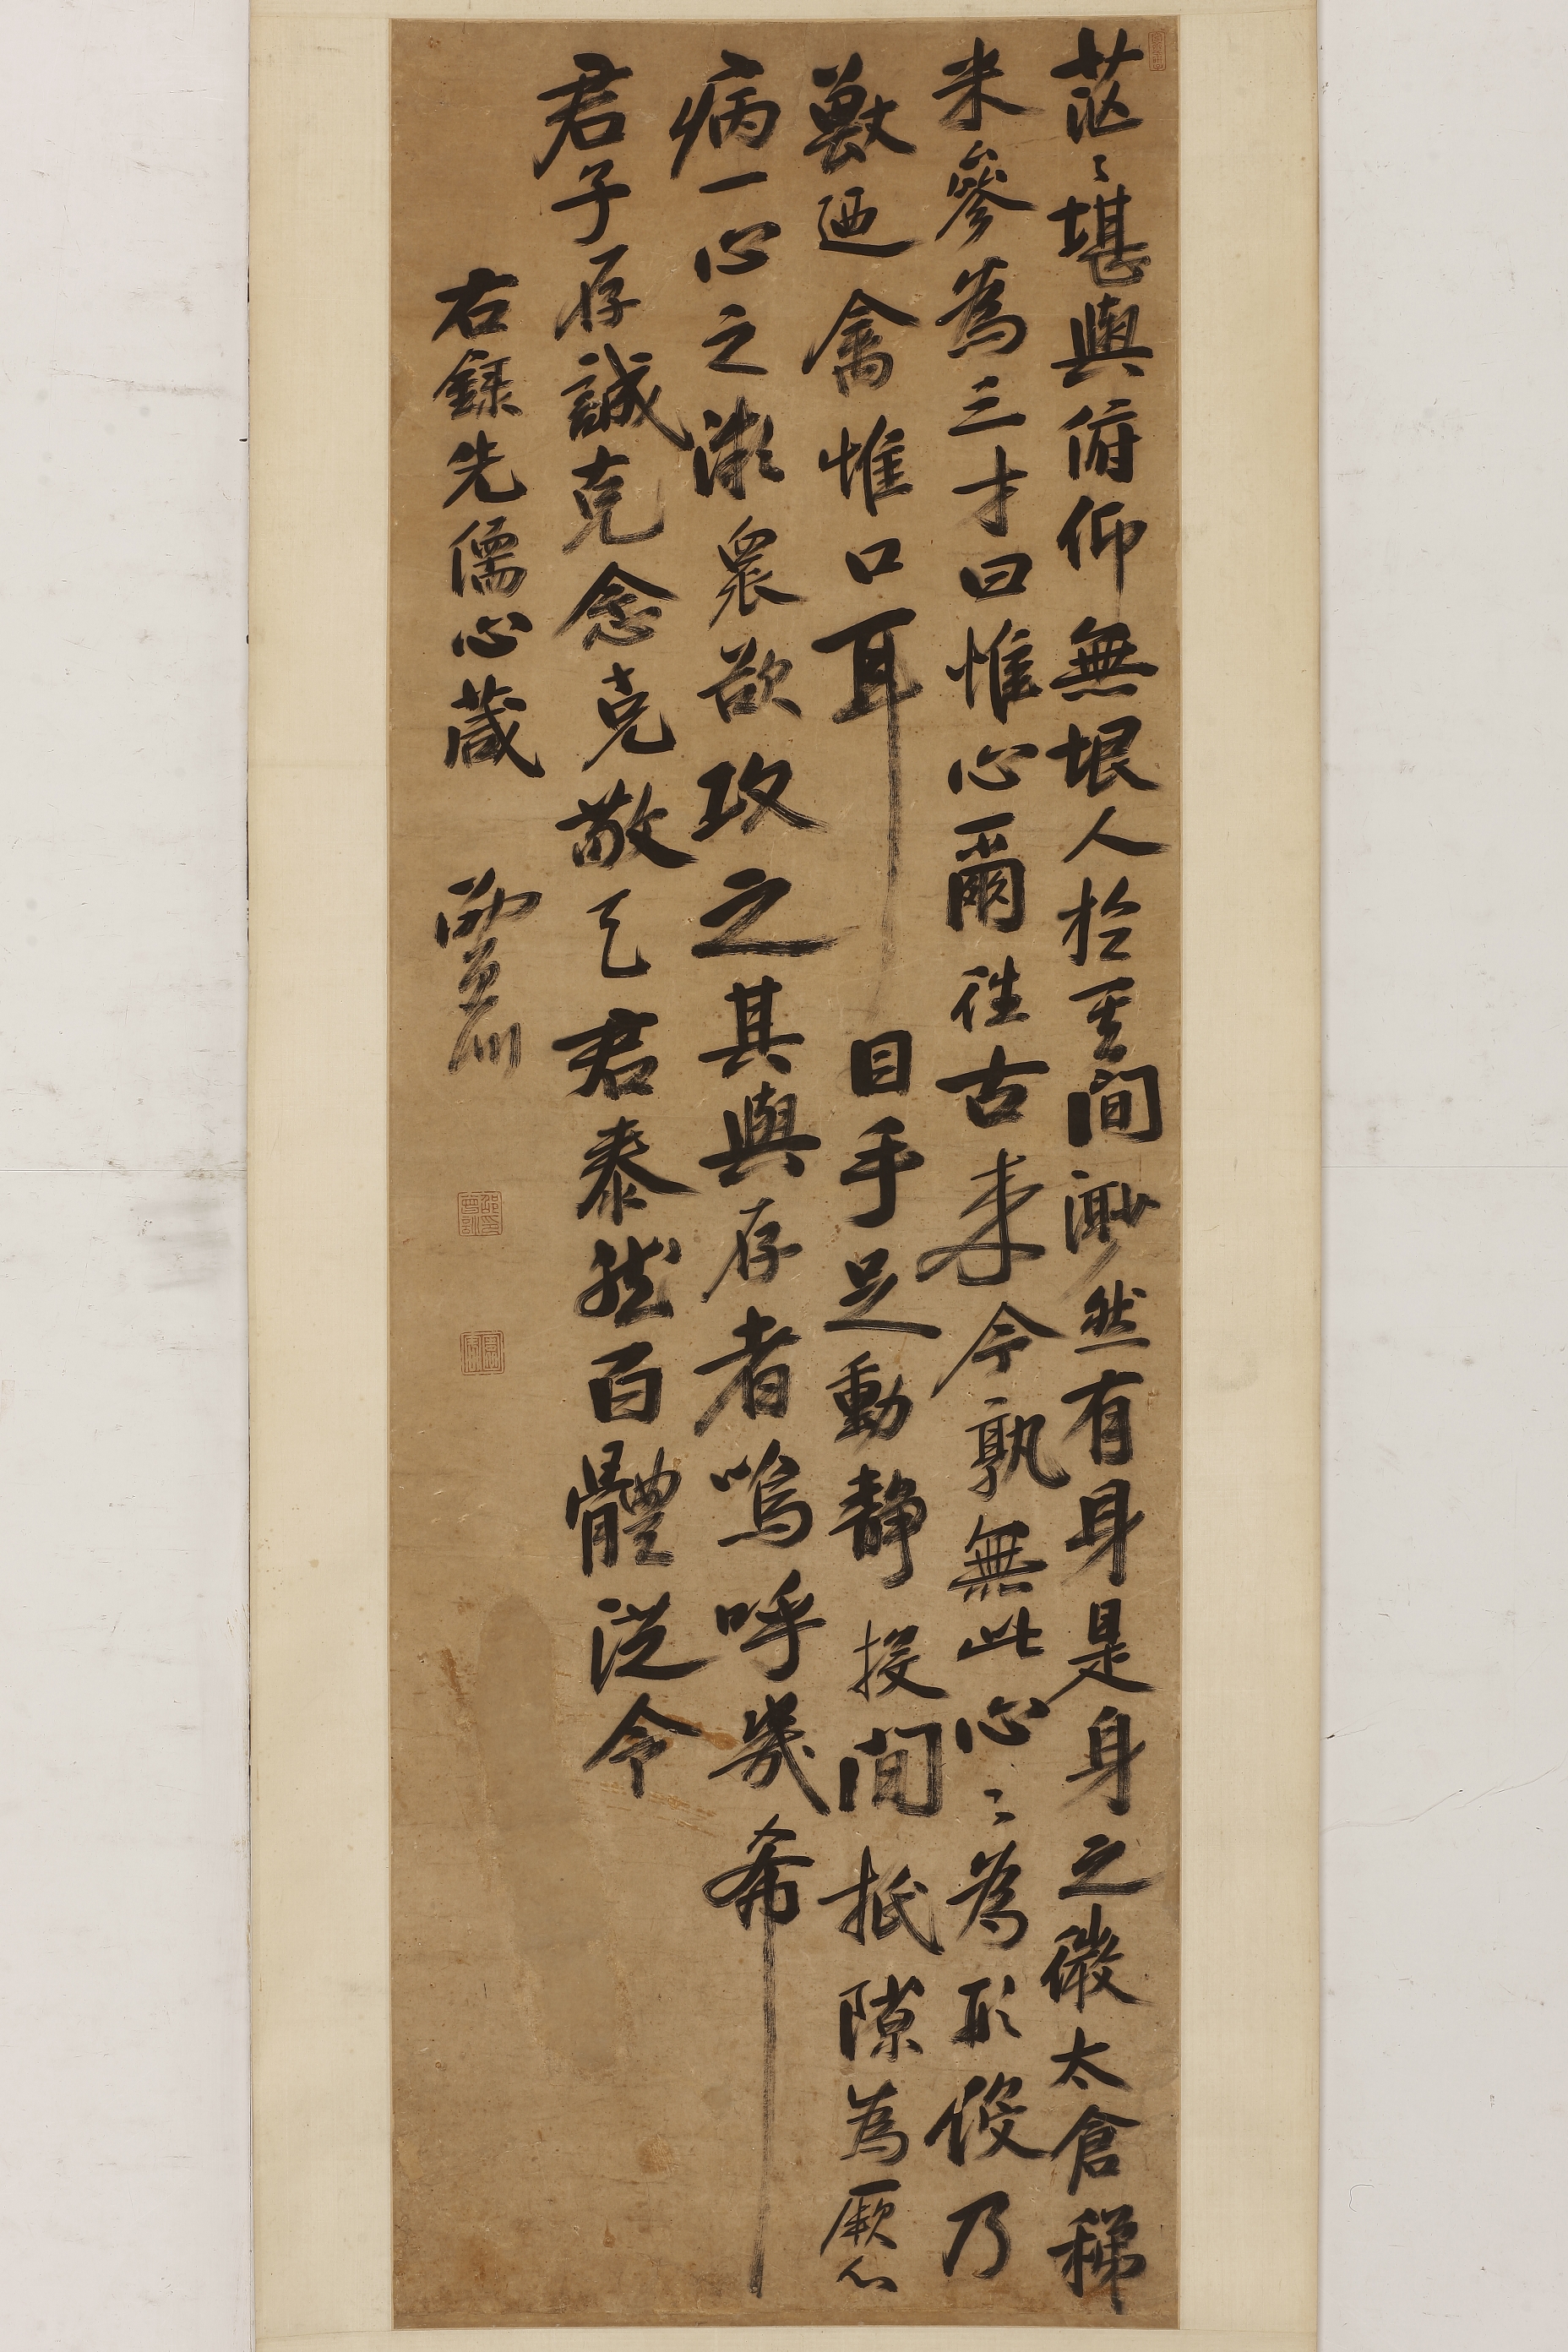 茫〻堪輿俯仰無垠人於其間渺然有身是身之微太倉稊
米參為三才曰惟心爾往古来今孰無此心〻為形役乃
獸迺禽惟口耳目手足動靜投間抵隙為厥心
病一心之微衆欲攻之其與存者嗚呼幾希
君子存誠克念克敬天君泰然百體從令
右錄先儒心箴